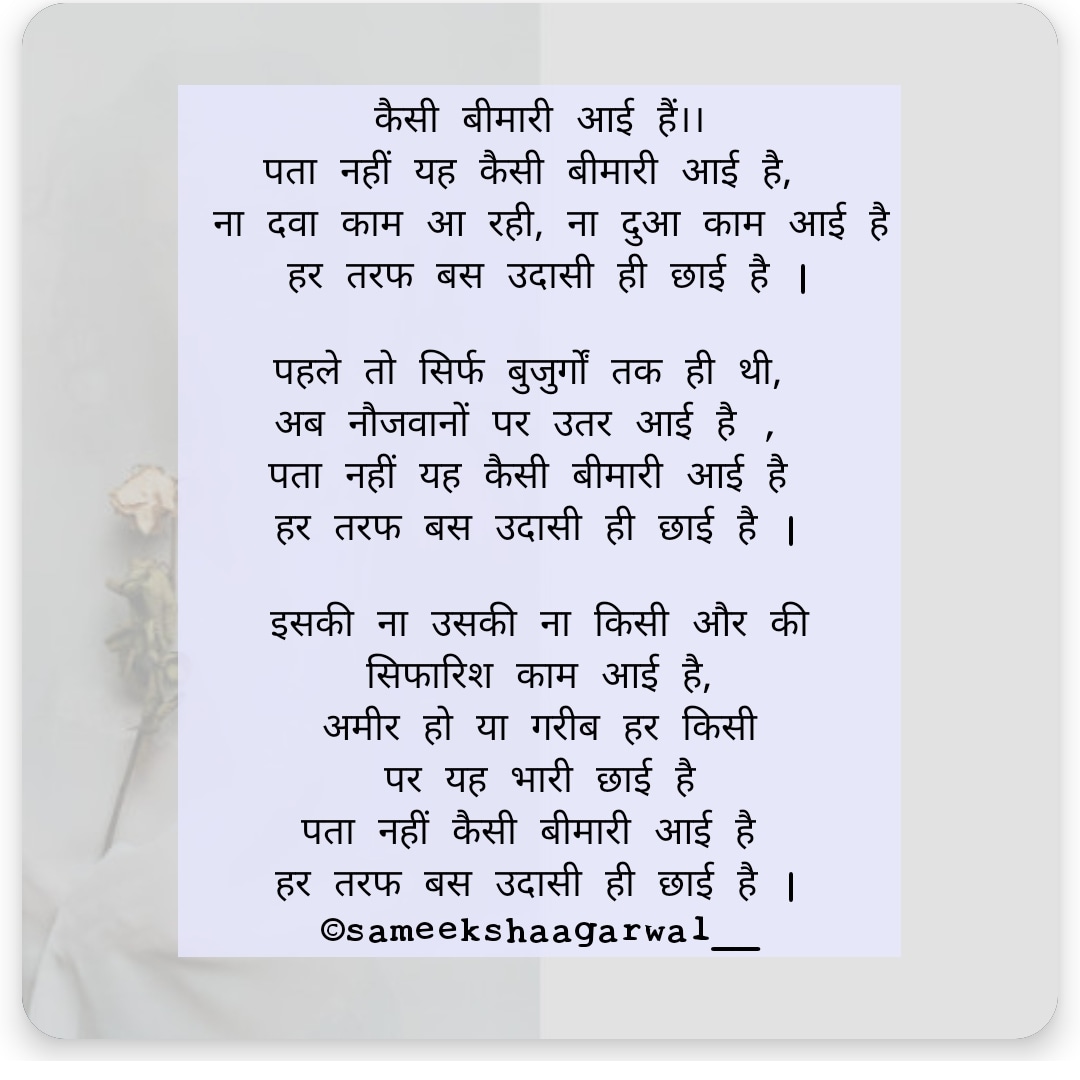 कैसी बीमारी आई हैं।।
पता नहीं यह कैसी बीमारी आई है,
ना दवा काम आ रही, ना दुआ काम आई है
हर तरफ बस उदासी ही छाई है |
पहले तो सिर्फ बुजुर्गों तक ही थी,
अब नौजवानों पर उतर आई है ,
पता नहीं यह कैसी बीमारी आई है
हर तरफ बस उदासी ही छाई है |
इसकी ना उसकी ना किसी और की
सिफारिश काम आई है,
अमीर हो या गरीब हर किसी
पर यह भारी छाई है
पता नहीं कैसी बीमारी आई है
हर तरफ बस उदासी ही छाई है |
©sameekshaagarwal__